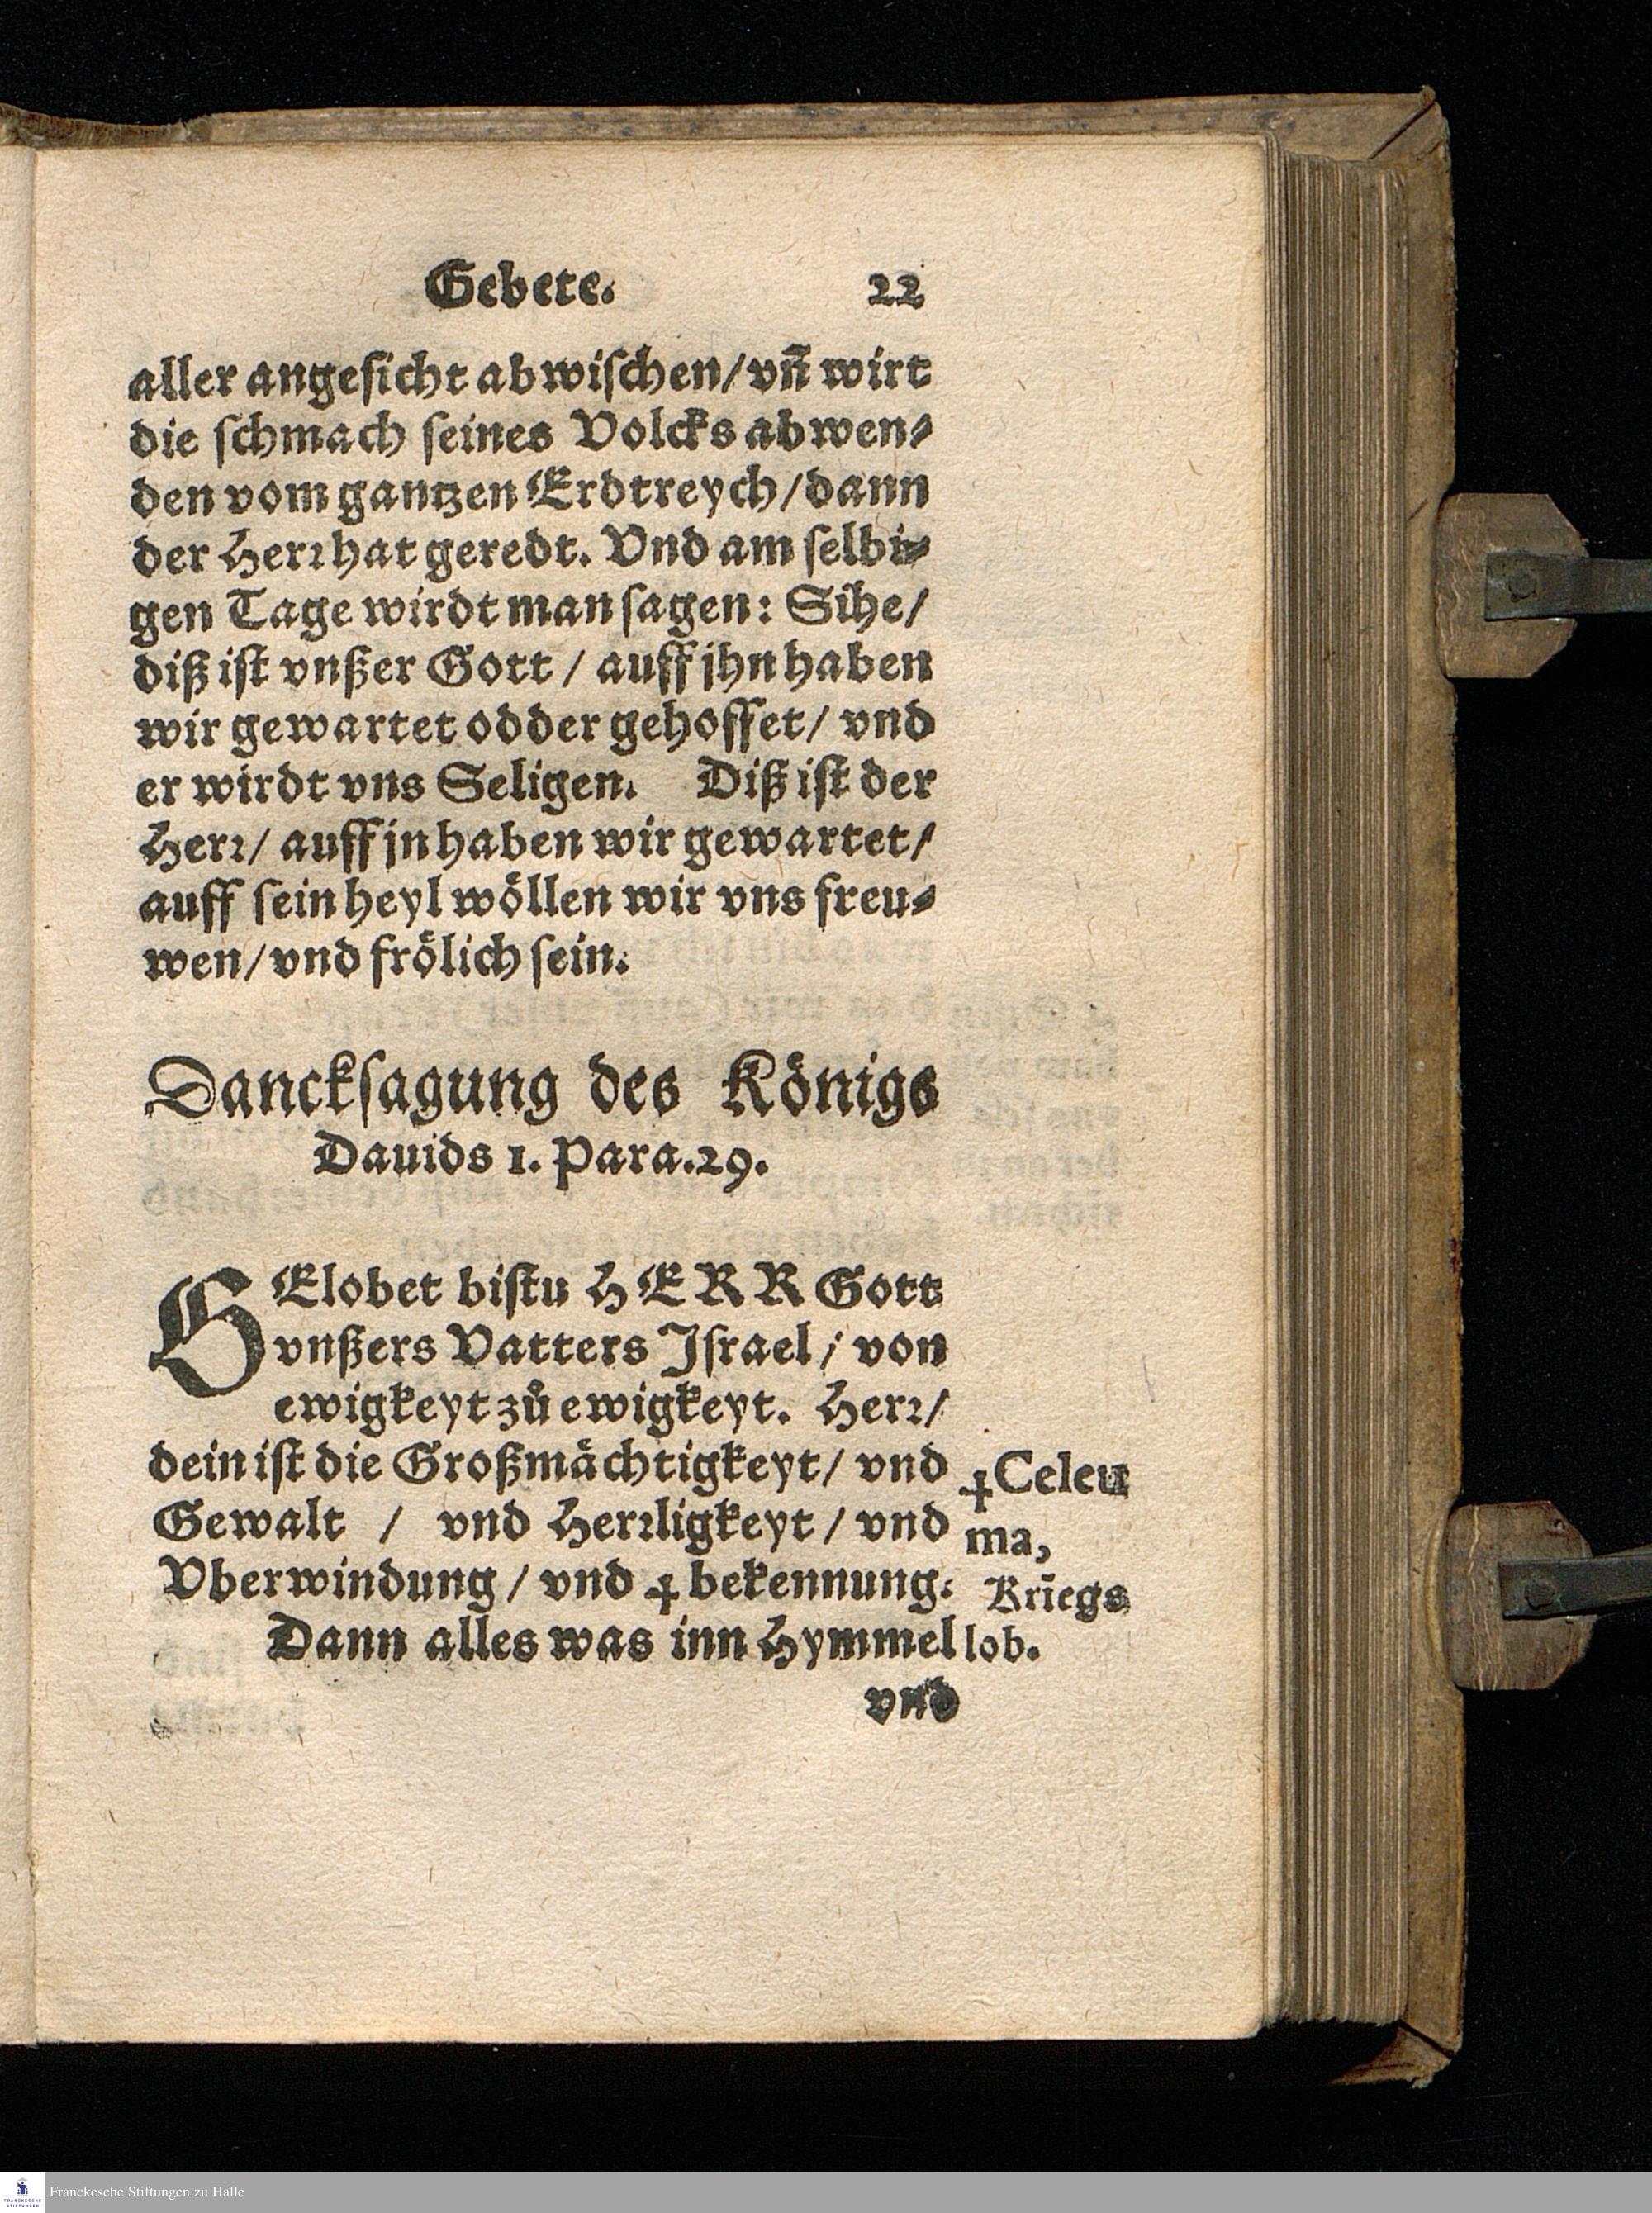 Gebete. 22
aller angesicht abwischen/vñ wirt
die schmach seines Volcks abwen⸗
den vom gantzen Erdtreych/dann
der Herr hat geredt. Vnd am selbi⸗
gen Tage wirdt man sagen: Sihe/
diß ist vnßer Gott / auff jhn haben
wir gewartet odder gehoffet/ vnd
er wirdt vns Seligen. Diß ist der
Herr/ auff jn haben wir gewartet/
auff sein heyl wöllen wir vns freu⸗
wen/vnd frölich sein.
Dancksagung des Königs
Dauids 1. Para.29.
GElobet bistu HERR Gott
vnßers Vatters Jsrael/ von
ewigkeyt zů ewigkeyt. Herr/
dein ist die Großmächtigkeyt/ vnd
Gewalt / vnd Herrligkeyt/ vnd
Vberwindung/ vnd ⁜ bekennung.
Dann alles was inn Hymmel
vnd
⁜Celeu
ma,
Kriegs
lob.
FRANCKESCHE
STIFTUNGEN
Franckesche Stiftungen zu Halle